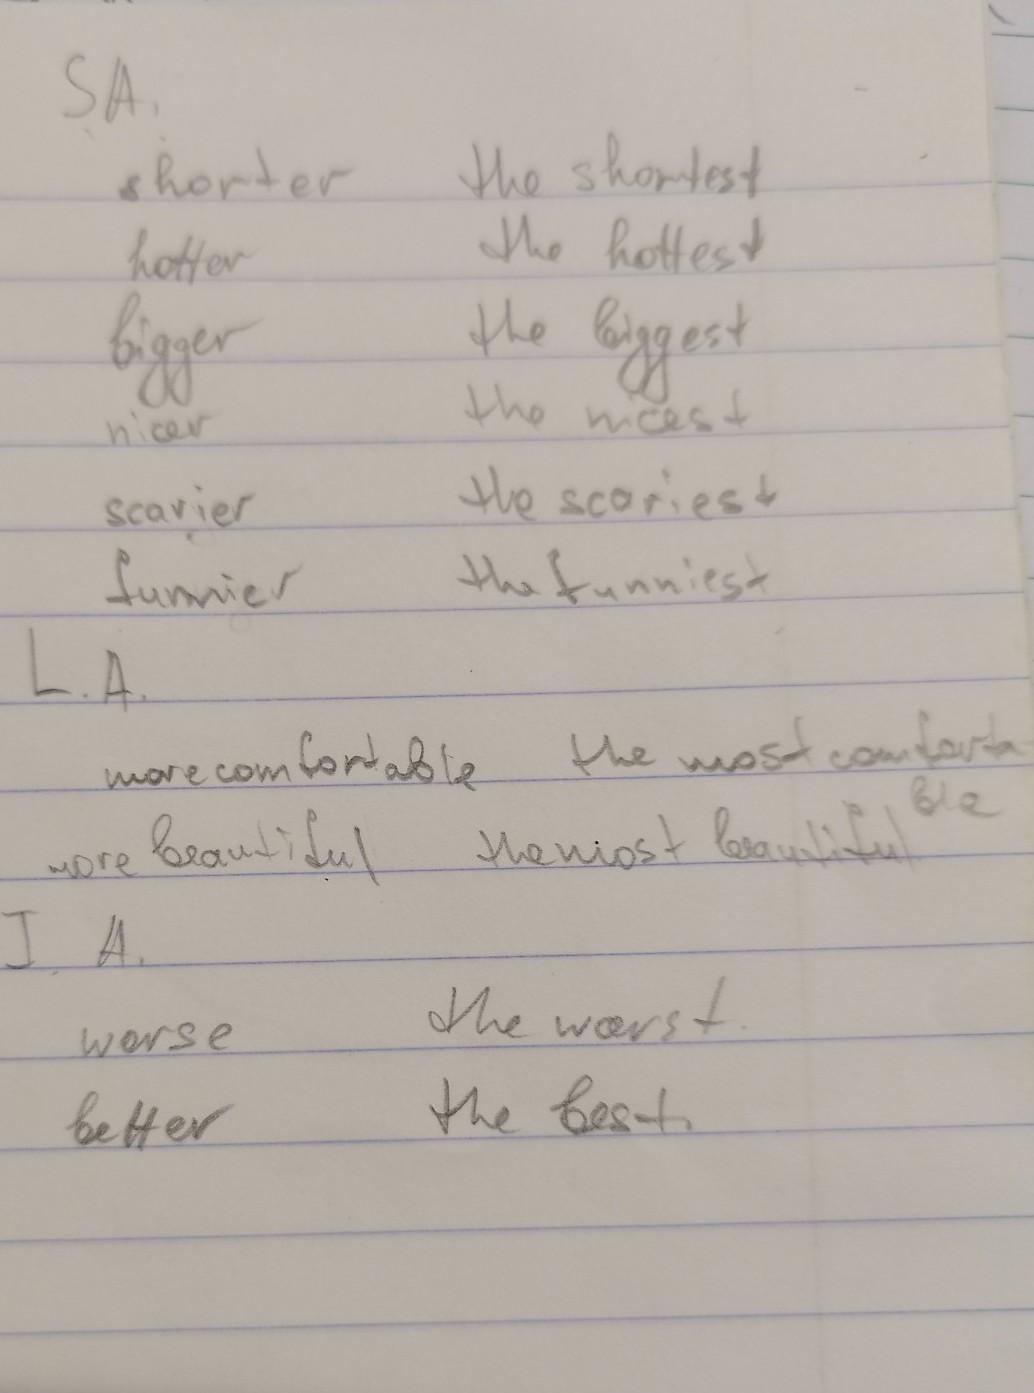 SA.
shorter the shortest
hotter the hottest
bigger the biggest
nicer the nicest
scarier the scariest
funnier the funniest
L.A.
more comfortable the most comforta
ble
more beautiful the most beautiful
I A.
worse the worst.
better the best.